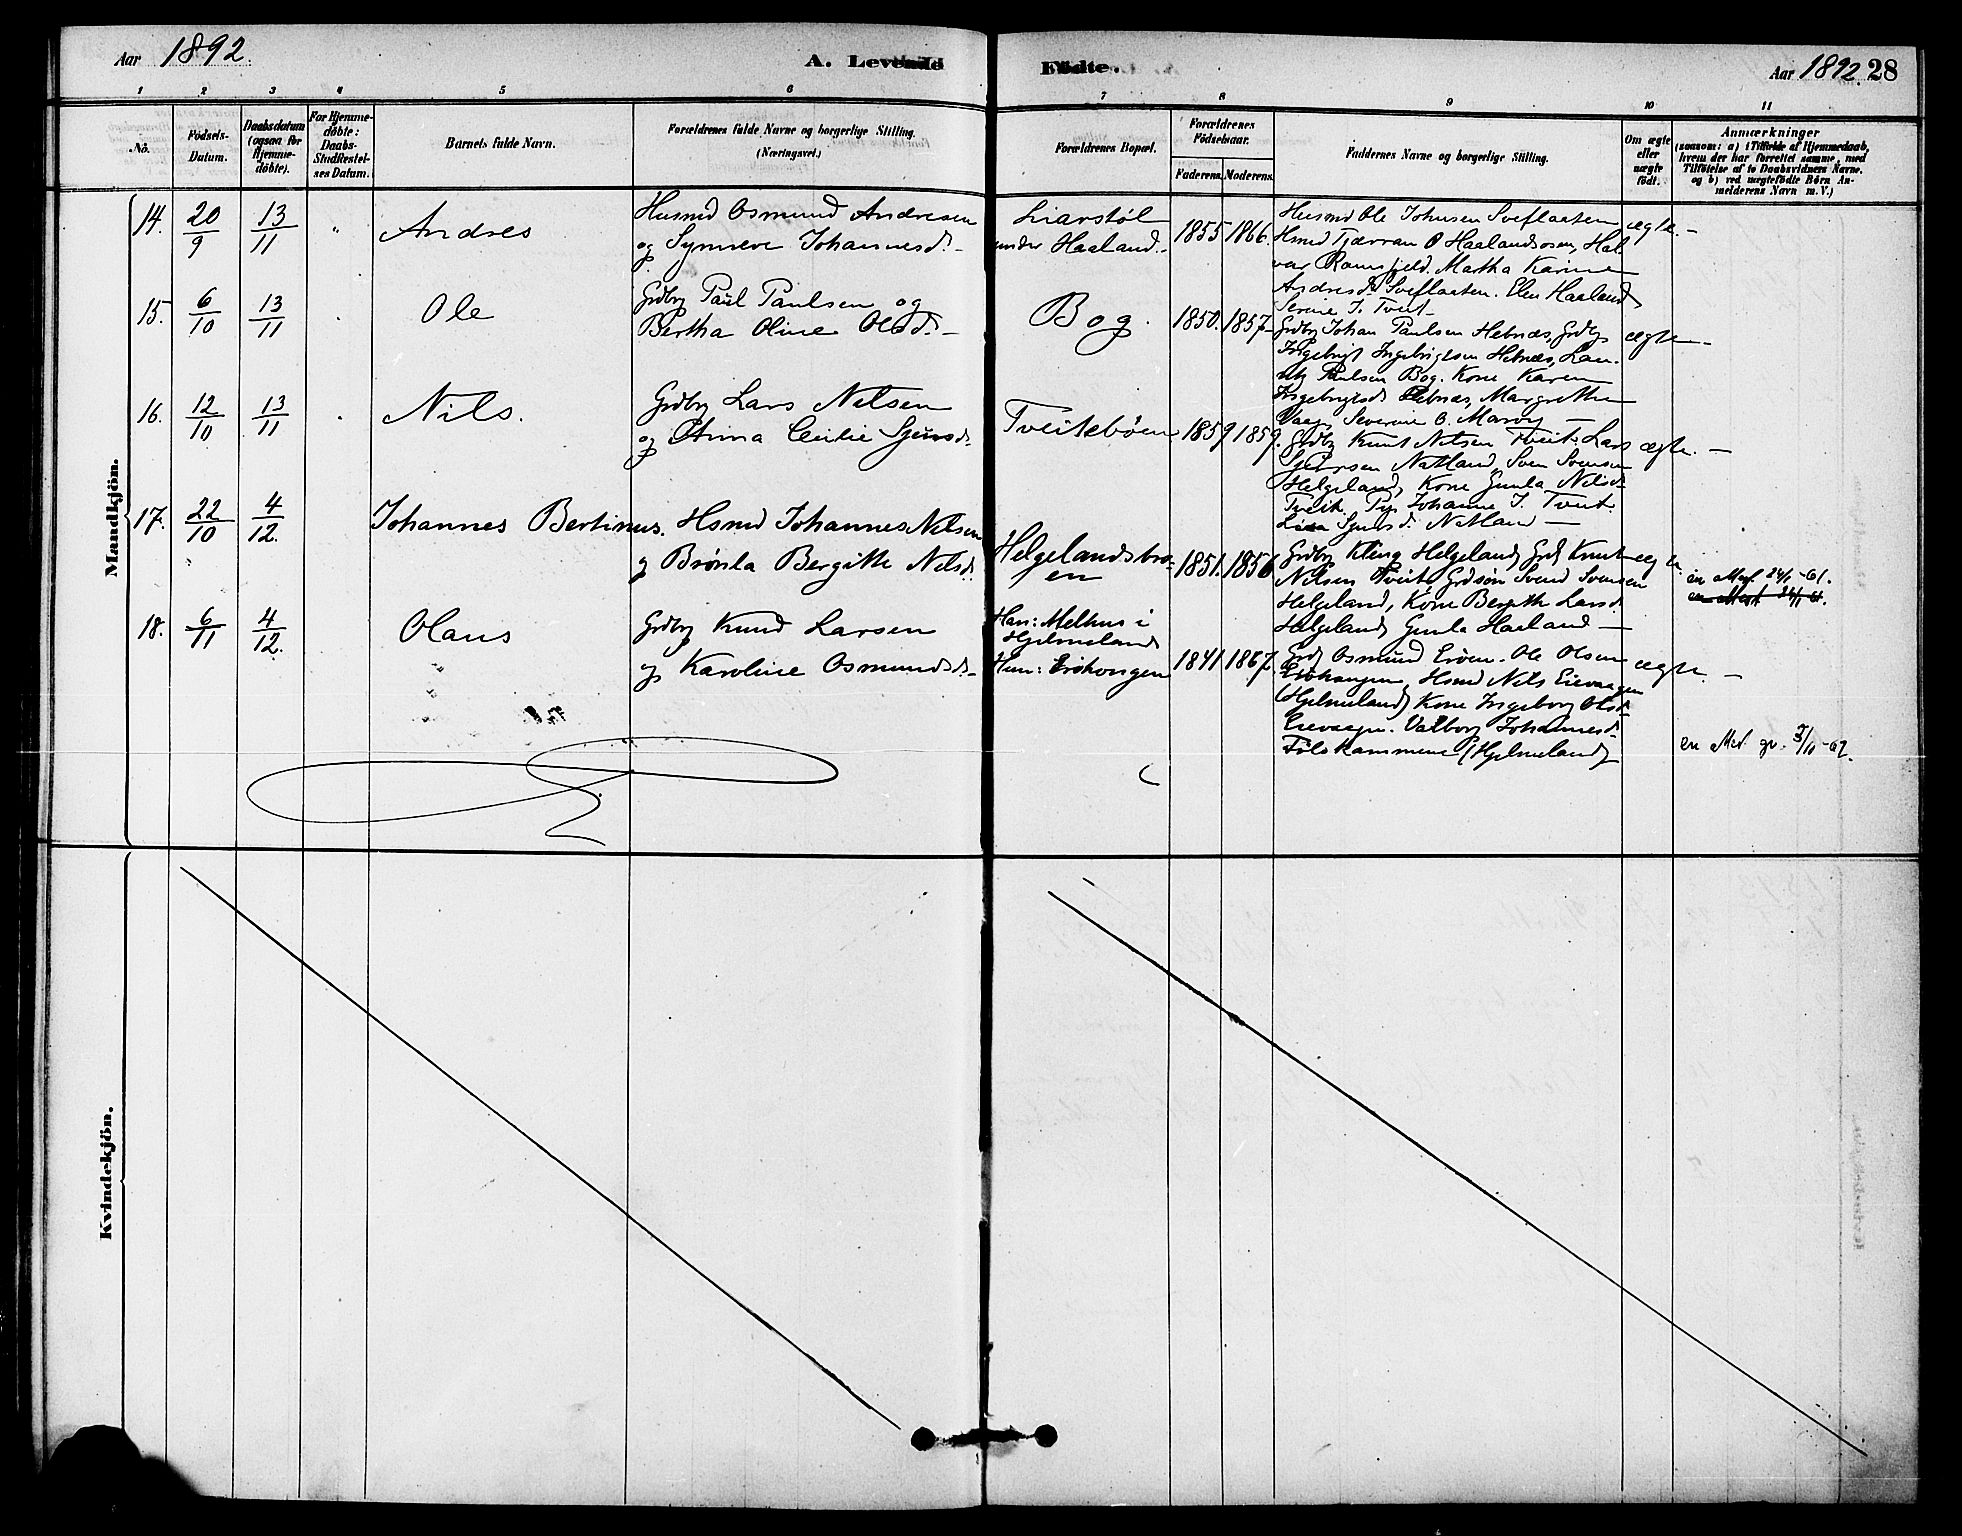 Aar 1892.
A. Levende Fødte.
Aar 1892. 28
1 2 3 4 5 6 7 8 9 10 11
No.
Fødsels-Datum.
Daabsdatum (ogsaa for Hjemmedøbte).
For Hjemmedøbte: Daabs-Stadfæstelses Datum.
Barnets fulde Navn.
Forældrenes fulde Navne og borgerlige Stilling. (Næringsvei.)
Forældrenes Bopæl.
Forældrenes Fødselsaar.
Faderens. Moderens.
Faddernes Navne og borgerlige Stilling.
Om ægte eller uægte født.
Anmærkninger
(saasom: a) i Tilfælde af Hjemmedaab, hvem der har forrettet samme, med Tilføielse af to Daabsvidners Navne. og b) ved uægtefødte Børn Anmelderens Navn m. V.)
Mandkjön.
14. 20/9 13/11 " Andres
Husmd Osmund Andresen
og Synneve Johannesd. -
Liarstøl
under Haaland.
1855 1866.
Husmd Ole Johnsen Sveflaaten
Hsmd Tjærran O Haalandsosen, Hal-
var Ramsfjeld. Martha Karine
Andresd. Sveflaaten. Elen Haaland
Serine J. Tveit -
ægte. -
15. 6/10 13/11 Ole
Grdbr Paul Paulsen og
Bertha Oline Olsd. -
Bog.
1850. 1857
Grdbr Johan Paulsen Hebnæs, Grdbr
Ingebrigt Ingebrigtsen Hebnæs, Lau-
ritz Paulsen Bog. Kone Karen
Ingebrigtsd. Hebnæs, Margrethe
Vaage, Severine O. Marvig -
ægte -
16. 12/10 13/11 Nils.
Grdbr Lars Nilsen
og Anna Cecilie Sjursd.
Tveitebøen
1859 1859.
Grdbr Knut Nilsen Tveit. Lars
Natland, Sven Svensen
Helgeland, Kone Gunla Nilsd.
Tveit. Pige Johanne J. Tveit
Lina Sjursd. Natland -
ægte. -
17. 22/10 4/12. Johannes Bertinus.
Hsmd Johannes Nilsen
og Brønla Bergitte Nilsd.
Helgelandsbro-
en
1851. 1856
Grdbr Kling Helgeland, Grdb Knut
Nilsen Tveit, Grdsøn Svend Svensen
Helgeland, Kone Bergith Larsd.
Helgeland, Gunla Haaland -
ægte
en 24/1 -61.
18. 6/11 4/12. Olaus
Grdbr Knud Larsen
og Karoline Osmundsd. -
Han: Melhus i
Hjelmeland
Hun:
1841. 1867.
Grdb Osmund Erøen. Ole Olsen
Hsmd Nils Eievaagen
(Hjelmeland) Kone Ingeborg Olsd.
Eievaagen. Valborg Johannesd.
(Hjelmeland)
ægte. -
en
Kvindekjön.